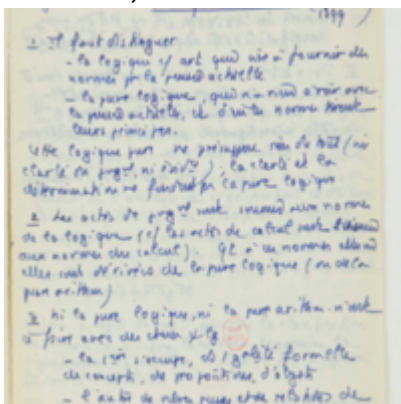 1899)
1 Il faut distinguer
- la logique c/ art qui vise à fournir des
normes pr la pensée actuelle
- la pure logique, qui n'a rien à voir avec
la pensée actuelle, et d'où les normes tirent
leurs principes.
Cette logique pure ne présuppose rien de tout (ni
clarté en jugt, ni évid), la clarté et la
détermination ne fondent pas la pure logique
2 Les actes de jugt sont soumis aux normes
de la logique (c/ les actes de calcul sont soumis
aux normes du calcul). Et ces normes
elles sont dérivées de la pure logique (ou de la
pure arithm)
3 Ni la pure logique, ni la pure arithm. n'ont
à faire avec des
- la s'occupe, légalité formelle
de concepts, de propositions, d'objets
- l'autre de nbres purs et des relations de